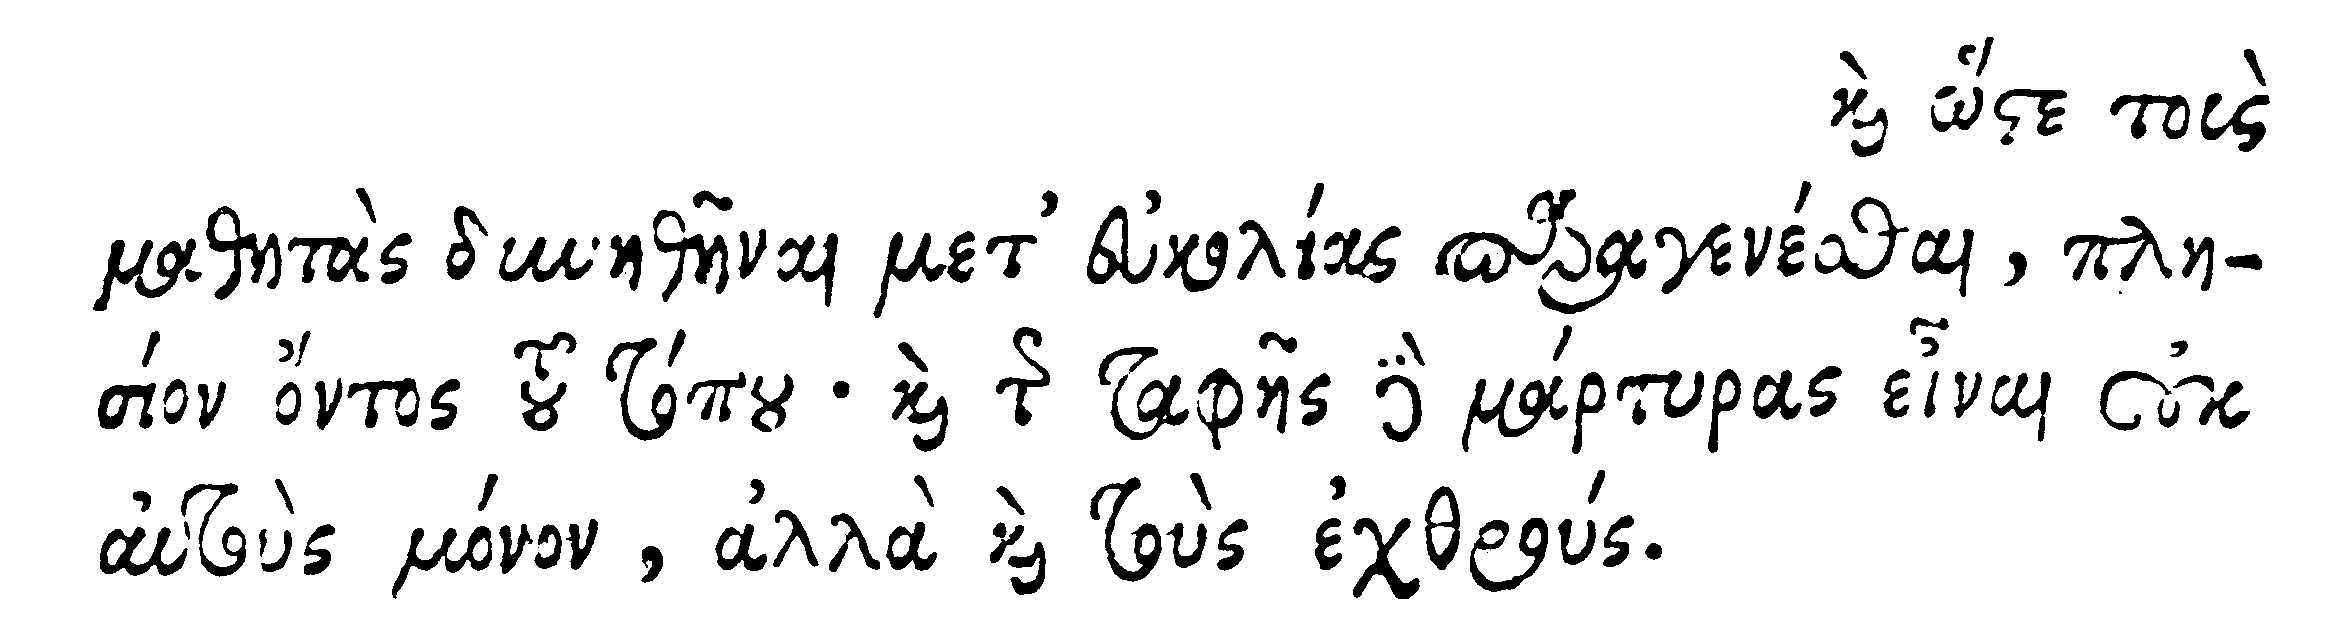 καὶ ὥστε τοὺς
μαθητὰς δυνηθῆναι μετ' εὐκολίας παραγενέσθαι, πλη-
σίον ὄντος τοῦ τόπου· καὶ τῆς ταφῆς δὲ μάρτυρας εἶναι οὐκ
αὐτοὺς μόνον, ἀλλὰ καὶ τοὺς ἐχθρούς.